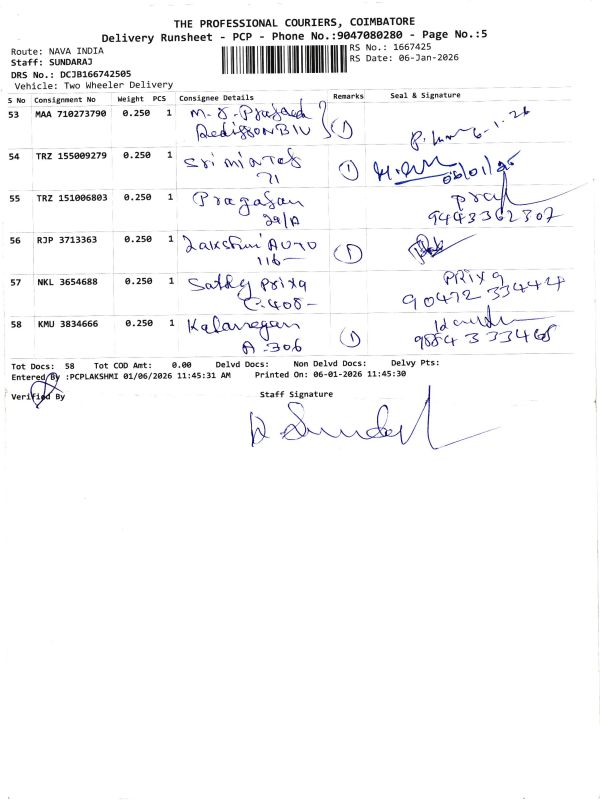 THE PROFESSIONAL COURIERS, COIMBATORE
Delivery Runsheet - PCP - Phone No.:9047080280 - Page No.:5
Route: NAVA INDIA
RS No.: 1667425
Staff: SUNDARAJ
RS Date: 06-Jan-2026
DRS No.: DCJB166742505
Vehicle: Two Wheeler Delivery
S No Consignment No Weight PCS Consignee Details Remarks Seal & Signature
53 MAA 710273790 0.250 1 M.J. Prasad 1 6-1-26
54 TRZ 155009279 0.250 1 Sri 1 06/01/26
71
55 TRZ 151006803 0.250 1 Pragasan
29/A 9443362307
56 RJP 3713363 0.250 1 Lakshmi AUTO 1
116
57 NKL 3654688 0.250 1 Sathy Priya PRIYA
C-408 90472 33444
58 KMU 3834666 0.250 1 Kalanegan 1
A-306
Tot Docs: 58 Tot COD Amt: 0.00 Delvd Docs: Non Delvd Docs: Delvy Pts:
Entered By :PCPLAKSHMI 01/06/2026 11:45:31 AM Printed On: 06-01-2026 11:45:30
Verified By Staff Signature